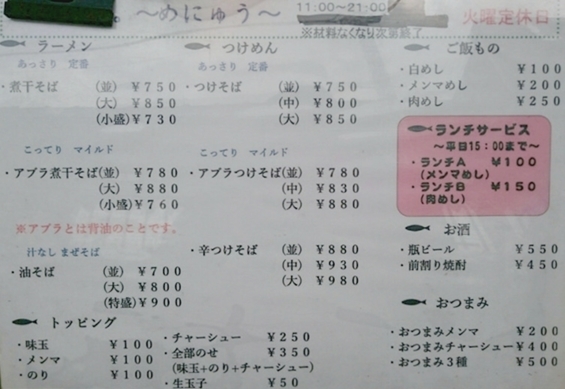 ～めにゅう～
11:00～21:00
※材料なくなり次第終了
火曜定休日
ラーメン
あっさり 定番
・煮干そば (並) ￥750
(大) ￥850
(小盛) ￥730
こってり マイルド
・アブラ煮干そば(並) ￥780
(大) ￥880
(小盛) ￥760
※アブラとは背油のことです。
汁なし まぜそば
・油そば (並) ￥700
(大) ￥800
(特盛) ￥900
つけめん
あっさり 定番
・つけそば (並) ￥750
(中) ￥800
(大) ￥850
こってり マイルド
・アブラつけそば(並) ￥780
(中) ￥830
(大) ￥880
・辛つけそば (並) ￥880
(中) ￥930
(大) ￥980
トッピング
・味玉 ￥100
・メンマ ￥100
・のり ￥100
・チャーシュー ￥250
・全部のせ ￥350
(味玉+のり+チャーシュー)
・生玉子 ￥50
ご飯もの
・白めし ￥100
・メンマめし ￥200
・肉めし ￥250
ランチサービス
～平日15:00まで～
・ランチA ￥100
(メンマめし)
・ランチB ￥150
(肉めし)
お酒
・瓶ビール ￥550
・前割り焼酎 ￥450
おつまみ
・おつまみメンマ ￥200
・おつまみチャーシュー ￥400
・おつまみ3種 ￥500